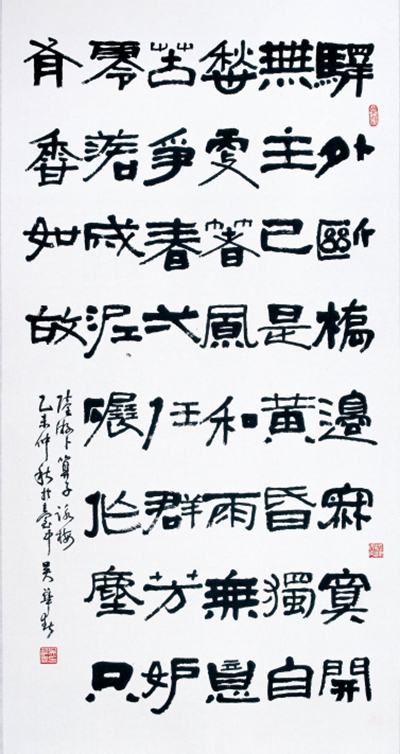 驛外斷橋邊寂寞開
無主已是黃昏獨自
愁更著風和雨無意
苦爭春弌任群芳妒
零落成泥碾作塵只
有香如故
陸游卜算子詠梅
乙未仲秋於臺中